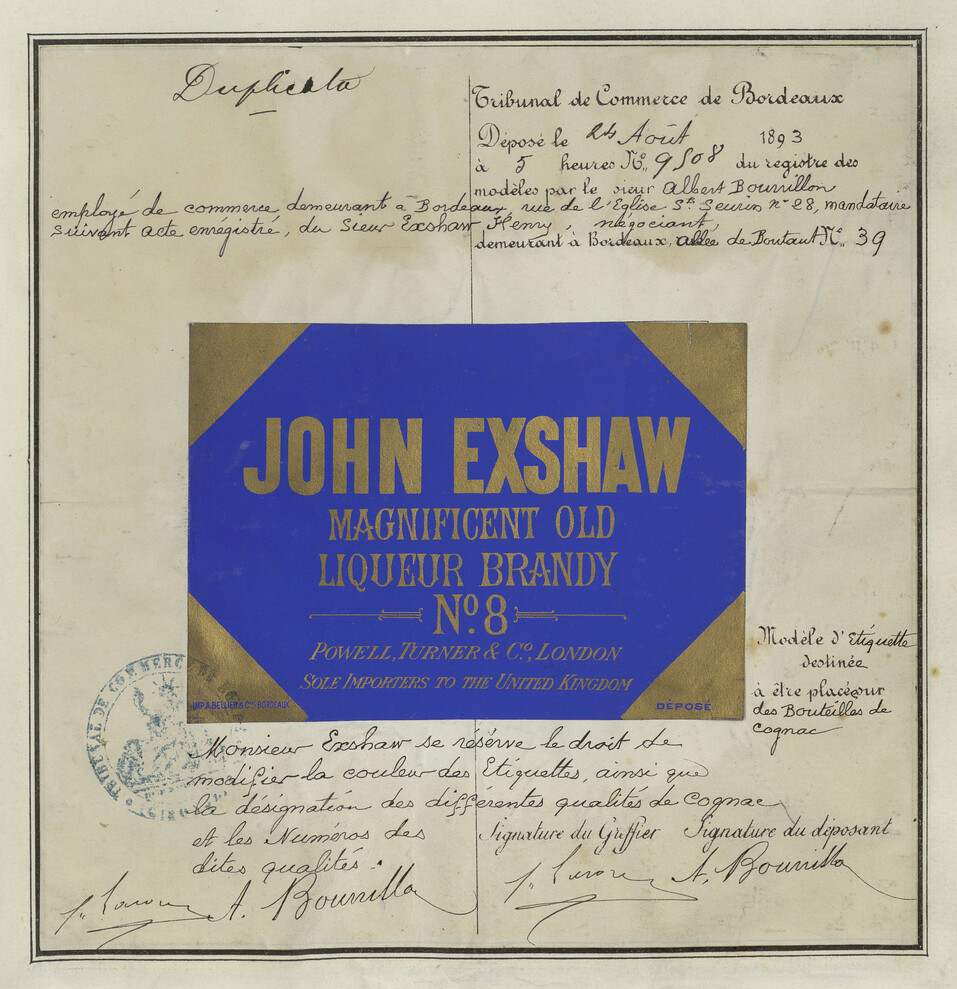 Duplicata
Tribunal de Commerce de Bordeaux
Déposé le 24 Août 1893
à 5 heures N° 9508 du registre des
modèles par le sieur Albert Bourrillon
employé de commerce demeurant à Bordeaux, rue de l'Eglise St. Seurin n° 28, mandataire
suivant acte enregistré, du Sieur Exshaw Henry, négociant,
demeurant à Bordeaux, allée de Boutaut N° 39
JOHN EXSHAW
MAGNIFICENT OLD
LIQUEUR BRANDY
No. 8
POWELL, TURNER & Co., LONDON
SOLE IMPORTERS TO THE UNITED KINGDOM
IMP. A. BELLIER & Cie BORDEAUX
DÉPOSÉ
Modèle d'Etiquette
destinée
à être placée sur
des Bouteilles de
cognac
TRIBUNAL DE COMMERCE DE
Monsieur Exshaw se réserve le droit de
modifier la couleur des Etiquettes, ainsi que
la désignation des différentes qualités de cognac
et les Numéros des
dites qualités.
Signature du Greffier Signature du déposant
A. Bourrillon
A. Bourrillon